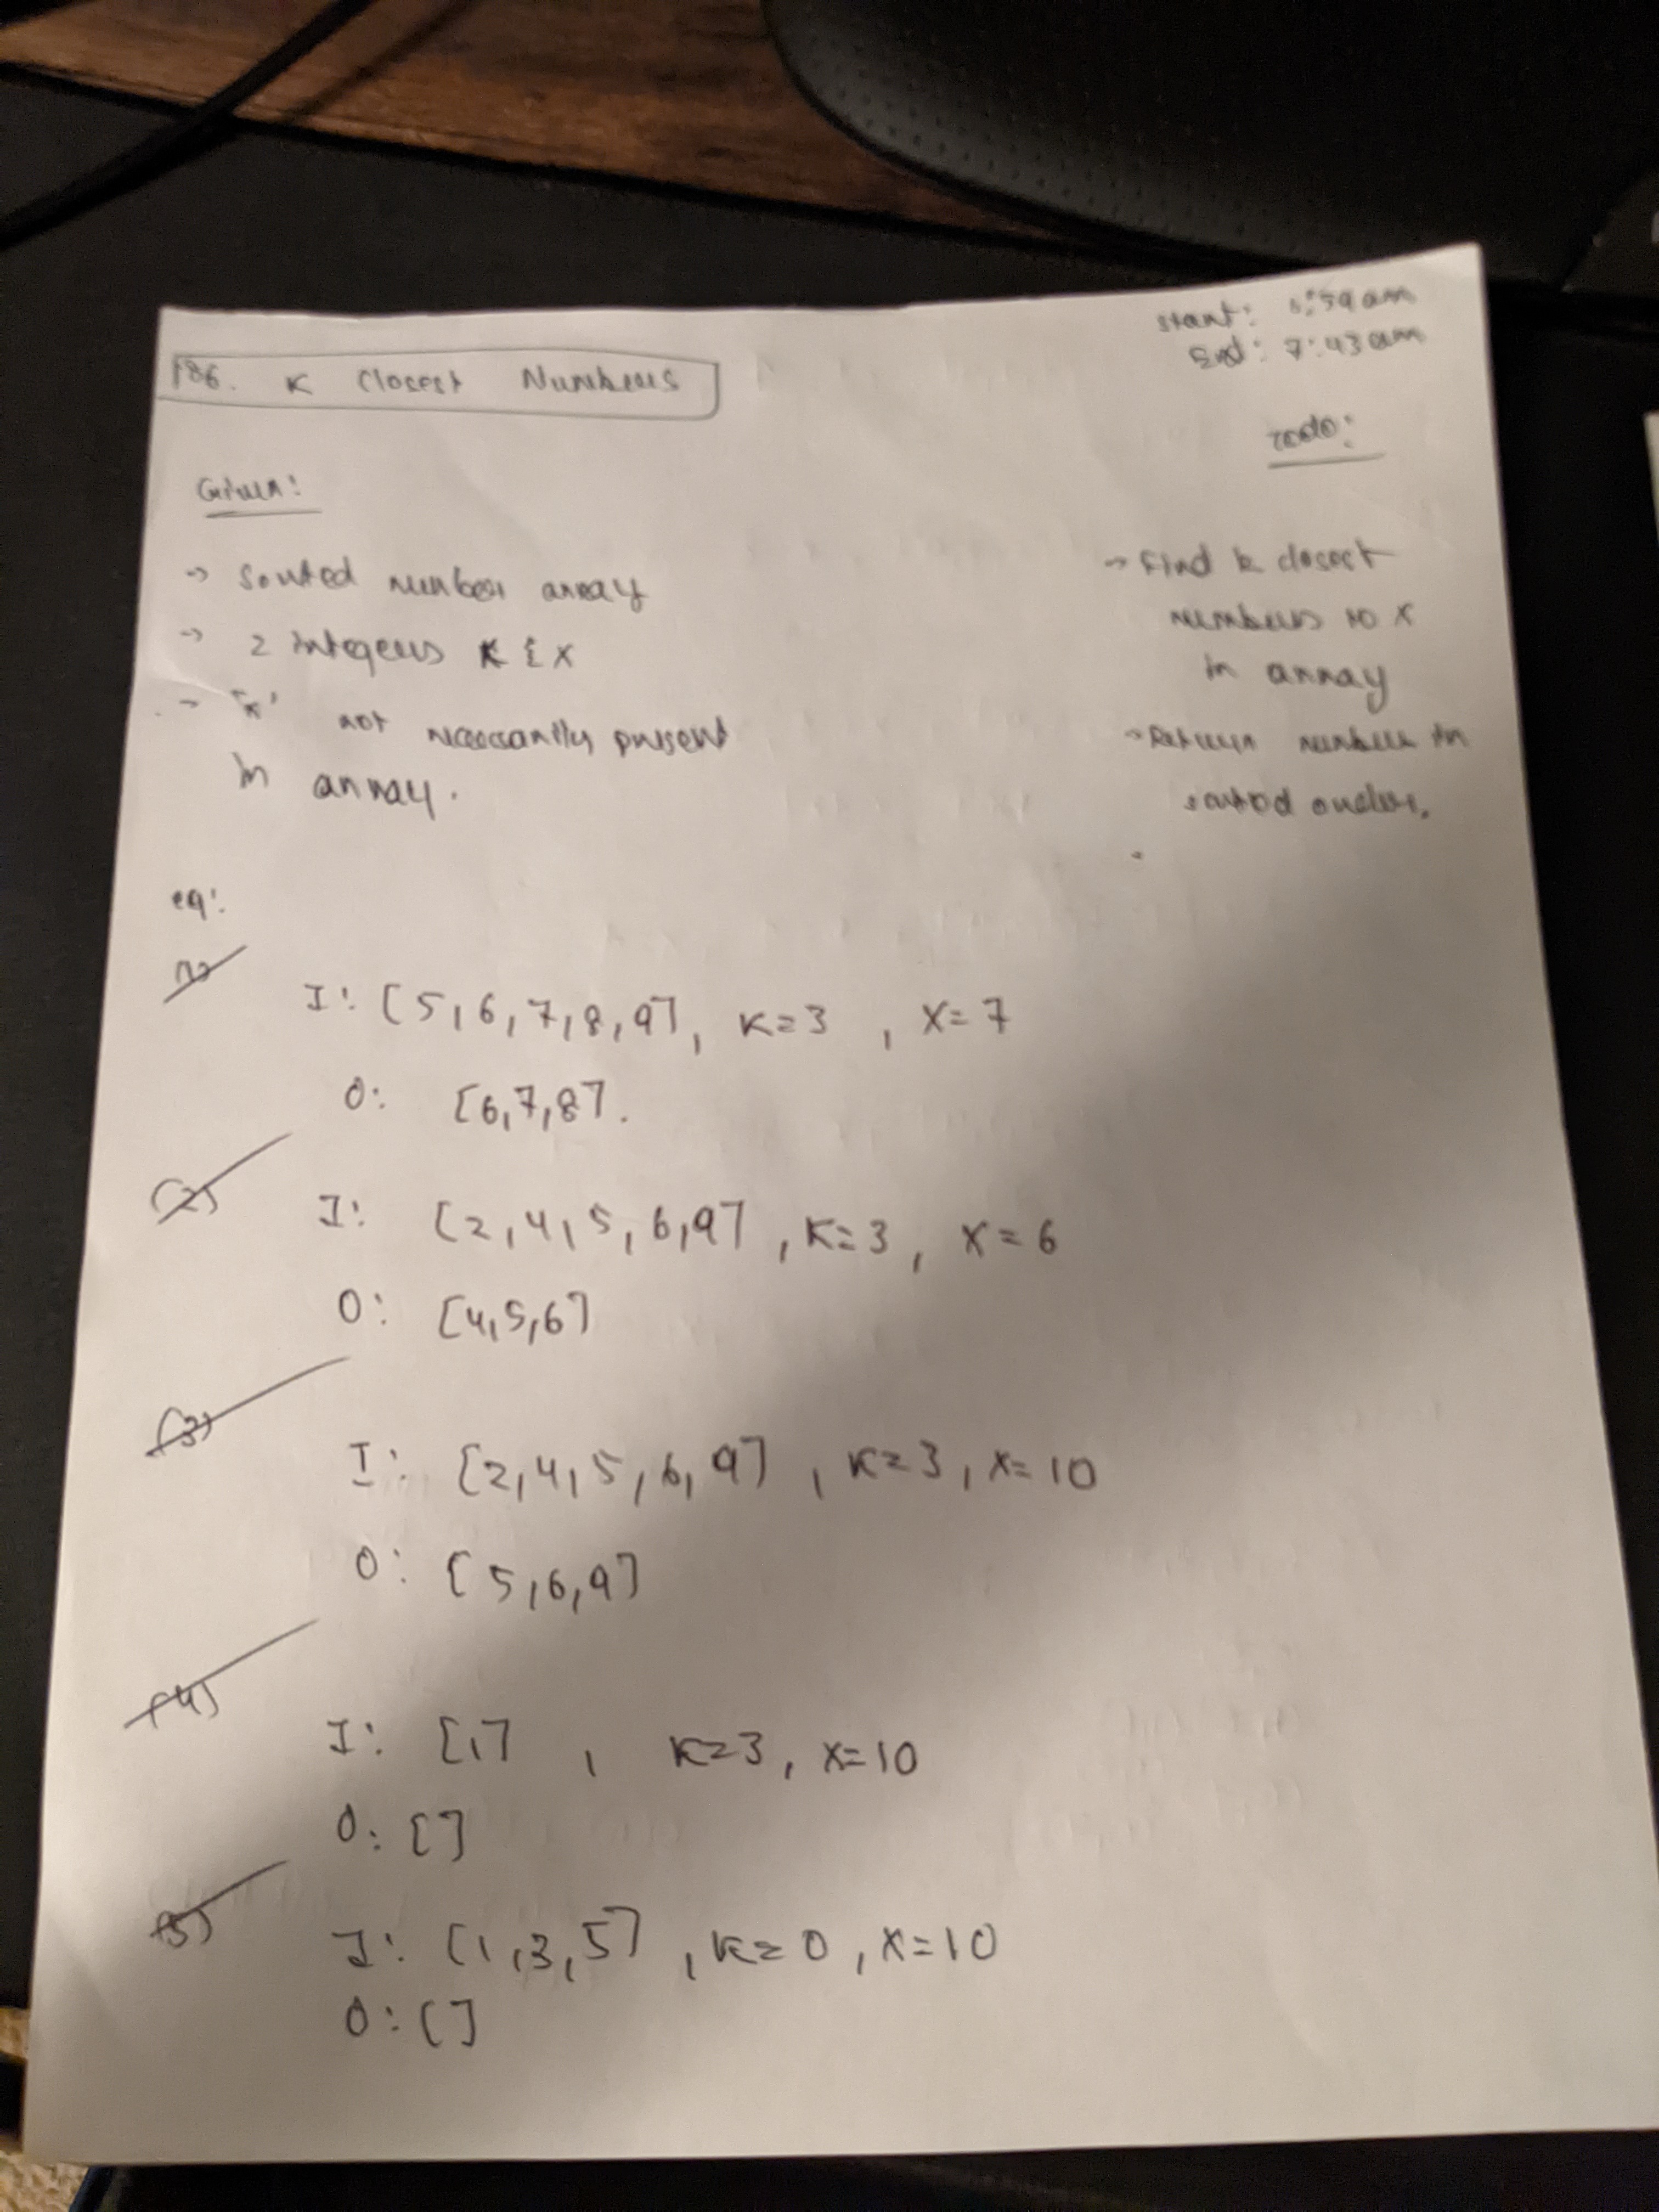 186. K Closest Numbers
Start: 6:59am
End: 7:43am
Given:
→ Sorted number array
→ 2 integers K & X
→ 'X' not necessarily present
in array.
Todo:
→ Find k closest
numbers to X
in array
→ Return numbers in
sorted order.
eg:
(1)
I: [5,6,7,8,9], K=3, X=7
O: [6,7,8].
(2)
I: [2,4,5,6,9], K=3, X=6
O: [4,5,6]
(3)
I: [2,4,5,6,9], K=3, X=10
O: [5,6,9]
(4)
I: [,], K=3, X=10
O: []
(5)
I: [1,3,5], K=0, X=10
O: []